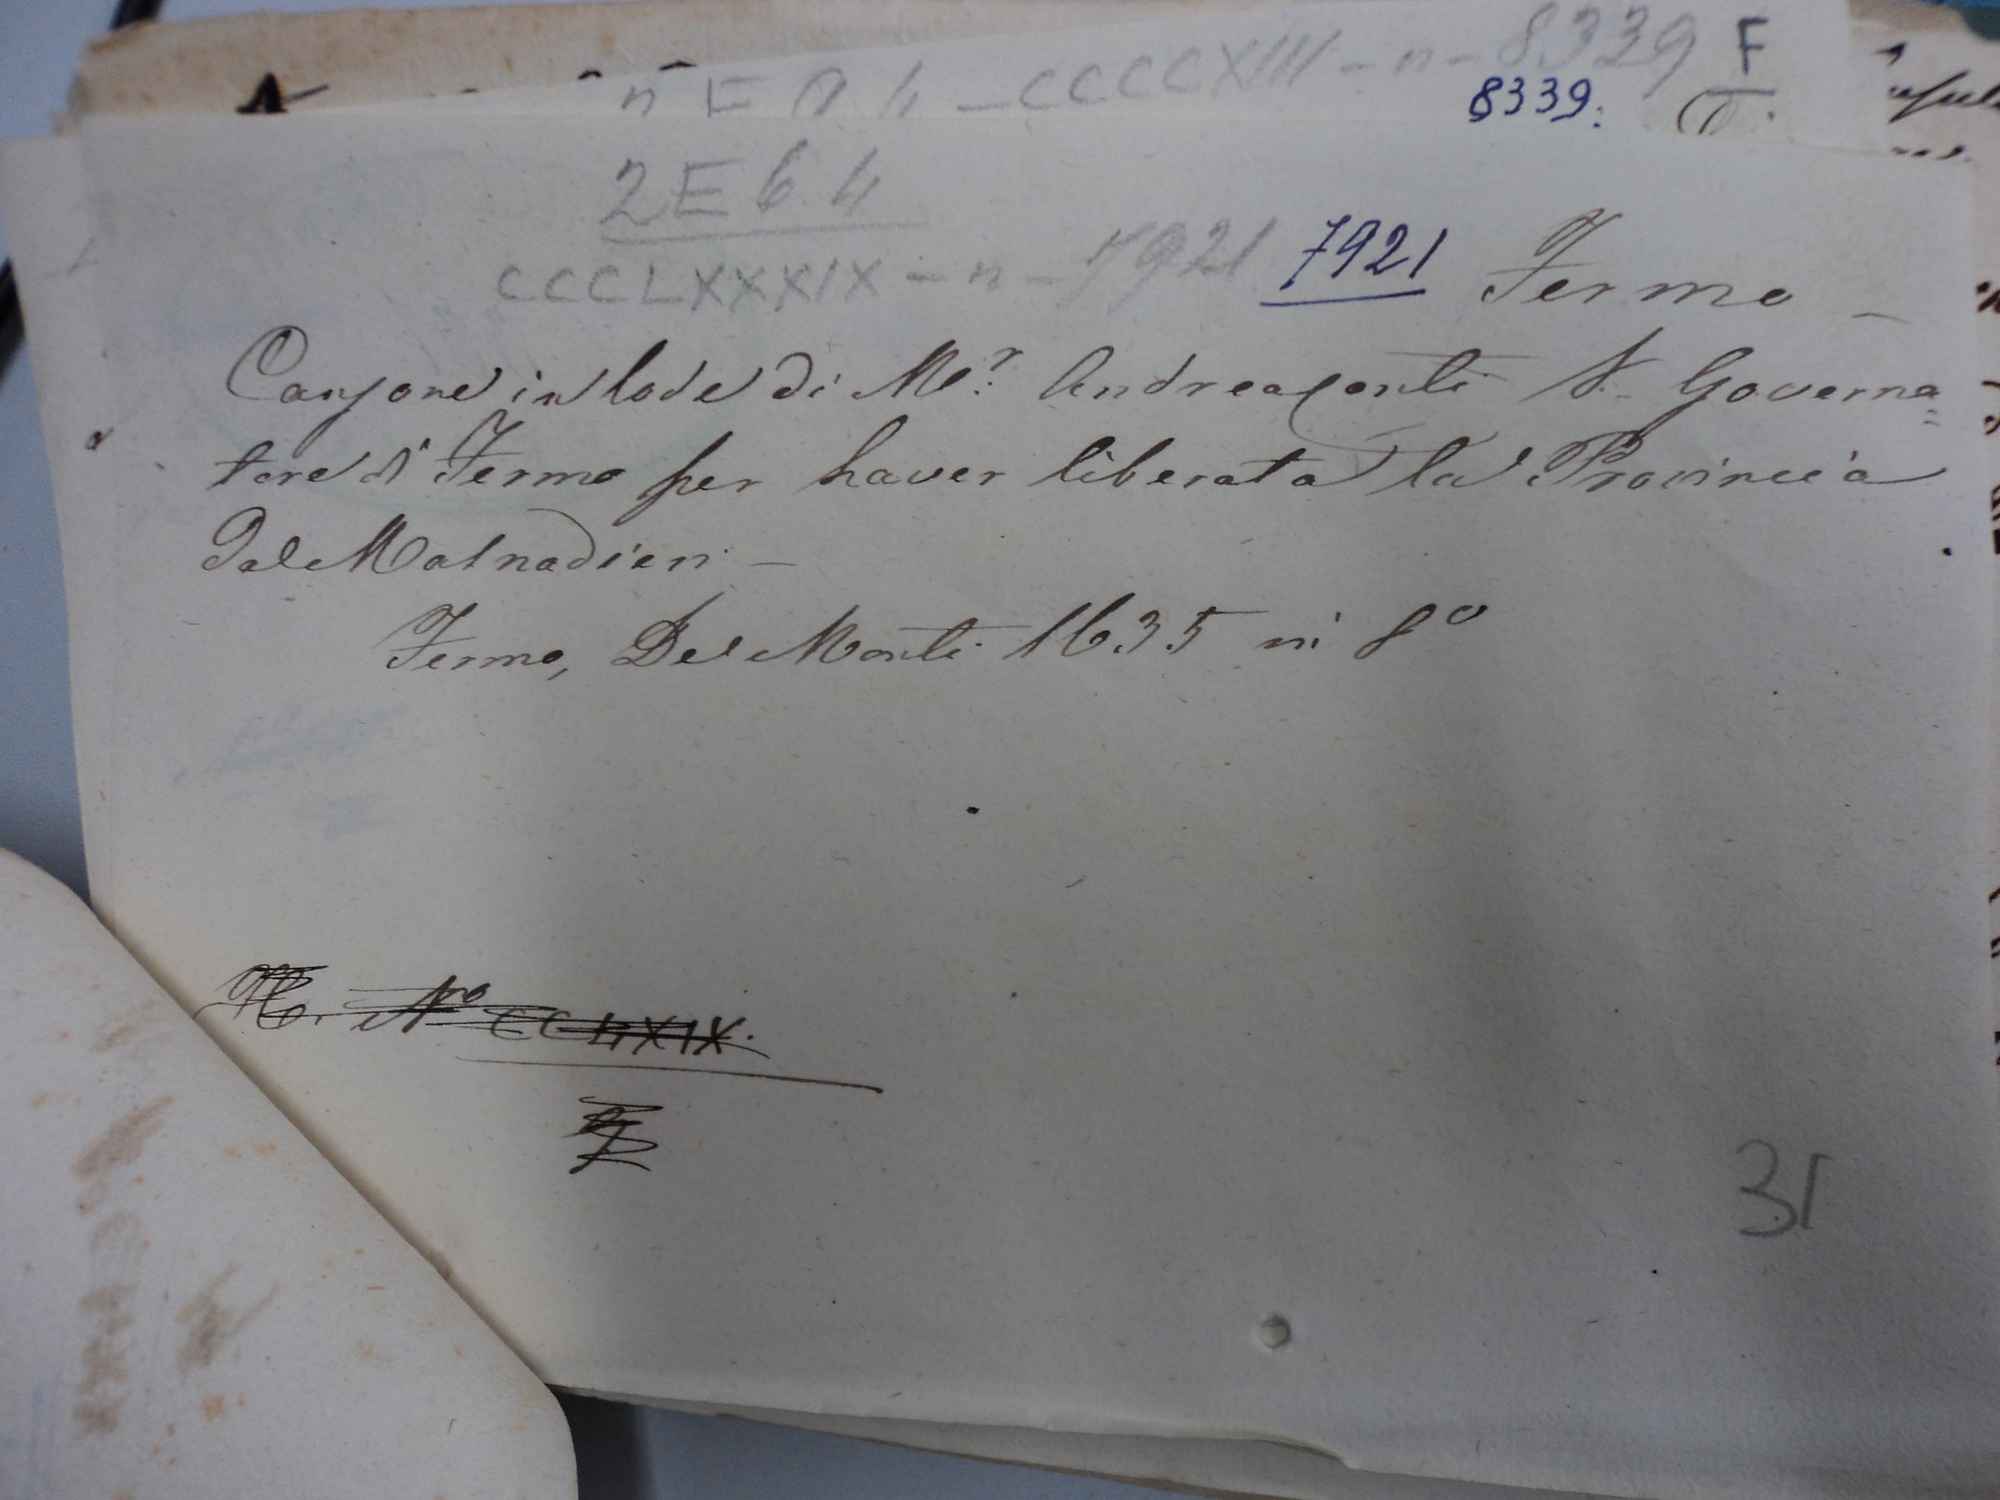 CCCCXIII - n - 8339 F
8339.
2E64
CCCLXXXIX - n - 7921 7921 Fermo -
Canzone in lode di Mr. Andrea Conti V. Governa=
tore di Fermo per haver liberata la Provincia
Dal Malnadieri -
Fermo, Del Monti 1635 in 8º
Nº CCLXIX.
31